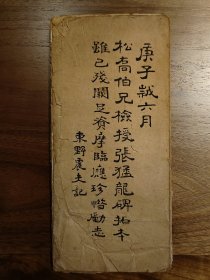 庚子拭六月
松高伯兄檢授張猛龍碑拓本
雖已殘闕足資摩臨應珍惜勵志
東野震夫記